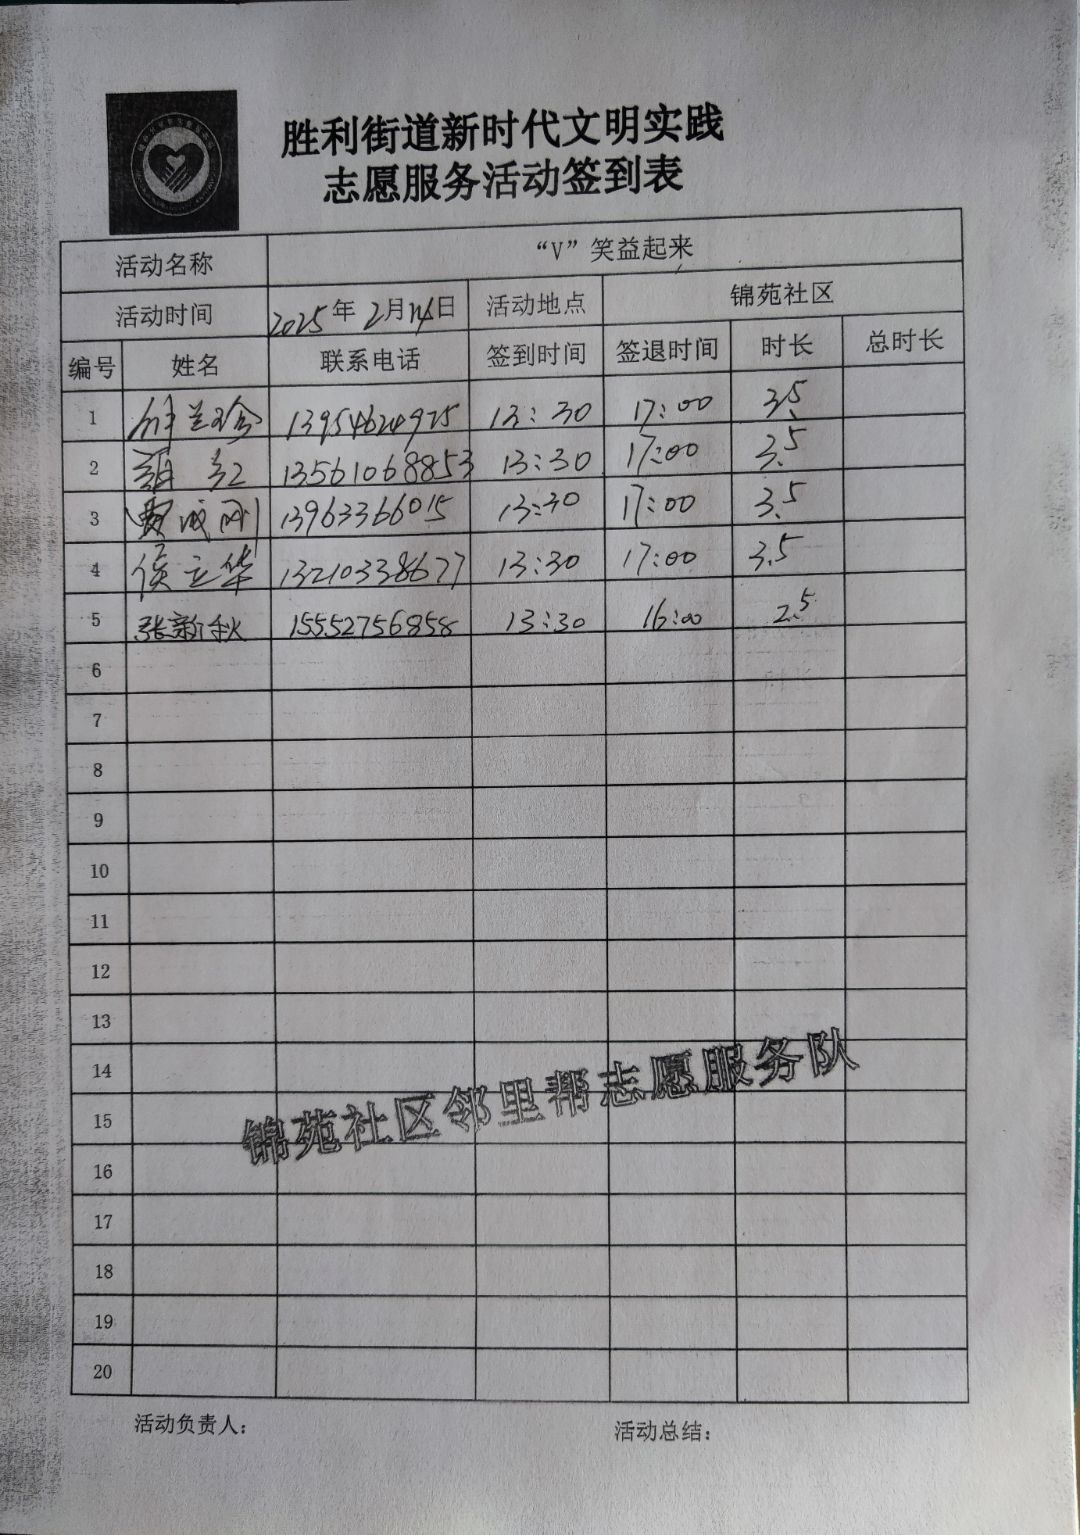 胜利街道新时代文明实践
志愿服务活动签到表
活动名称 “V”笑益起来
活动时间 2025年 2月14日 活动地点 锦苑社区
编号 姓名 联系电话 签到时间 签退时间 时长 总时长
1 13954624975 13:30 17:00 3.5
2 13561068853 13:30 17:00 3.5
3 费成刚 13963366015 13:30 17:00 3.5
4 侯立华 13210338677 13:30 17:00 3.5
5 张新秋 15552756858 13:30 16:00 2.5
6
7
8
9
10
11
12
13
14
15
16
17
18
19
20
锦苑社区邻里帮志愿服务队
活动负责人： 活动总结：